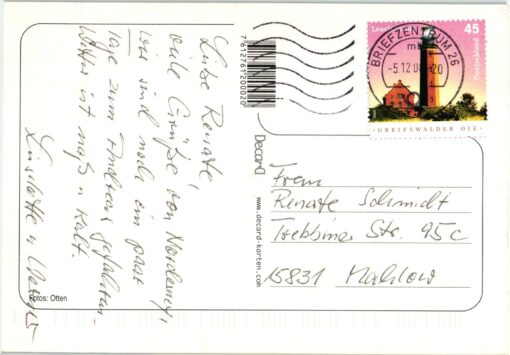 Liebe Renate,
viele Grüße von Norderney,
wir sind noch ein paar
Tage zum Ausklang gefahren.
Wetter ist naß u kalt.
Liselotte u Werner
Fotos: Otten
7612767200020
Decard
www.decard-karten.com
45
Deutschland
BRIEFZENTRUM 26
-5.12.0
20
GREIFSWALDER OIE
Frau
Renate Schmidt
Trebbiner Str. 95c
15831 Mahlow